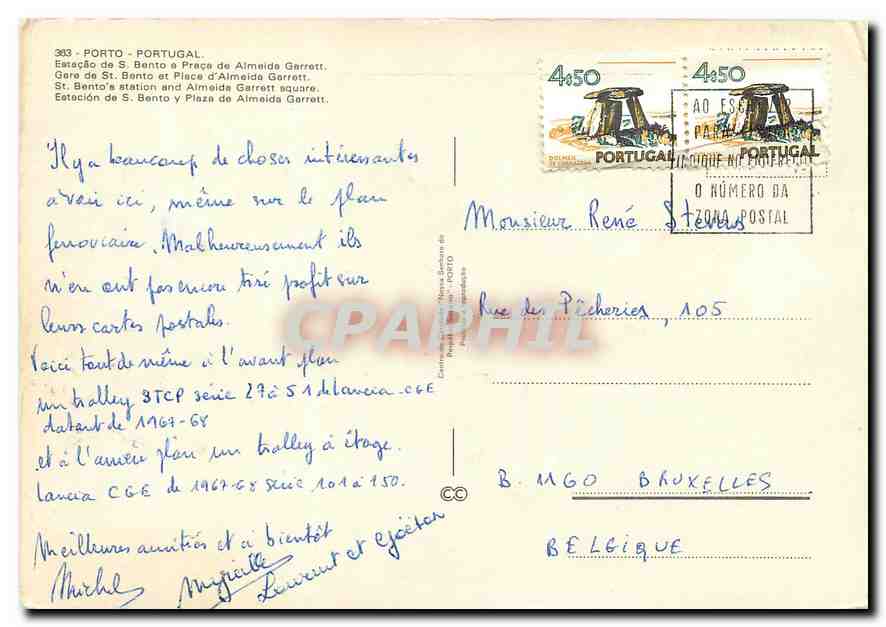 363 - PORTO - PORTUGAL.
Estação de S. Bento e Praça de Almeida Garrett.
Gare de St. Bento et Place d'Almeida Garrett.
St. Bento's station and Almeida Garrett square.
Estación de S. Bento y Plaza de Almeida Garrett.
Il y a beaucoup de choses intéressantes
à voir ici, même sur le plan
ferroviaire. Malheureusement ils
n'en ont pas encore tiré profit sur
leurs cartes postales.
Voici tout de même à l'avant plan
un trolley STCP série 27 à 51 de Lancia-CGE
datant de 1967-68
et à l'arrière plan un trolley à étage
Lancia CGE de 1967-68 série 101 à 150.
Meilleures amitiés et à bientôt
Michel
Myreille
Laurent et Gaëtan
4$50
PORTUGAL
4$50
PORTUGAL
AO
INDIQUE NO
O NÚMERO DA
ZONA POSTAL
Monsieur René Stevens
Rue des Pêcheries, 105
B. 1160 BRUXELLES
BELGIQUE
PORTO
CC
CPAPHIL